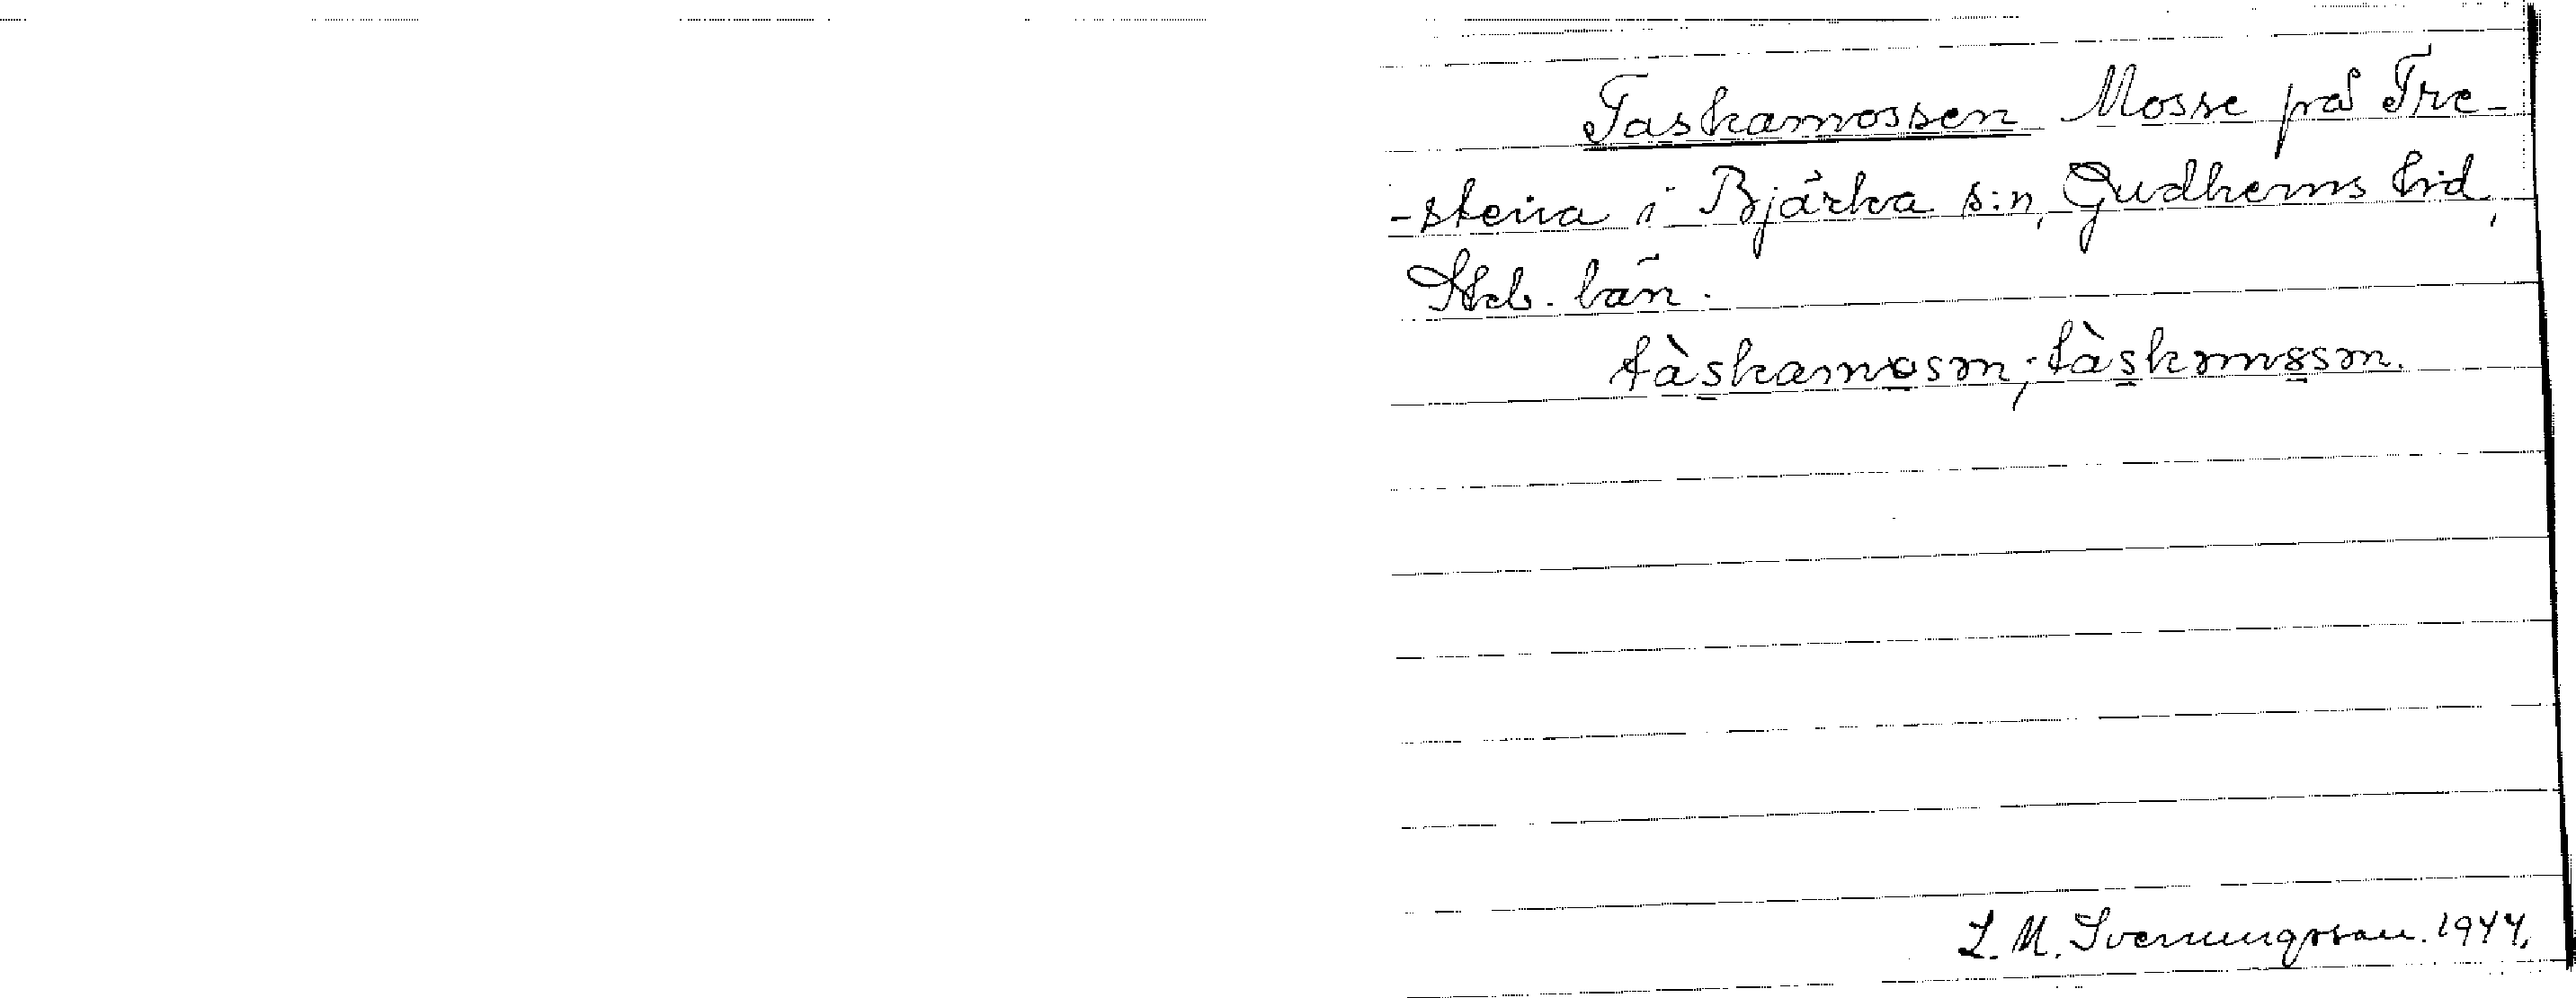 Taskamossen Mosse på Tre-
-stena i Bjärka s:n, Gudhems hrd,
Skb. län.
tàskamosən; tàskəmosən.
L. M. Svenungsson. 1944.